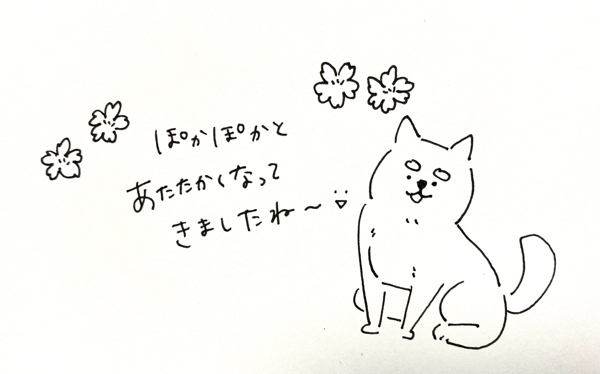 ぽかぽかと
あたたかくなって
きましたね〜